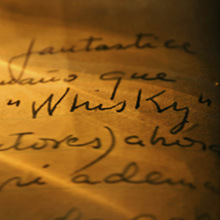 fantastico
maño que
"Whisky"
ctores) ahora
ri adema